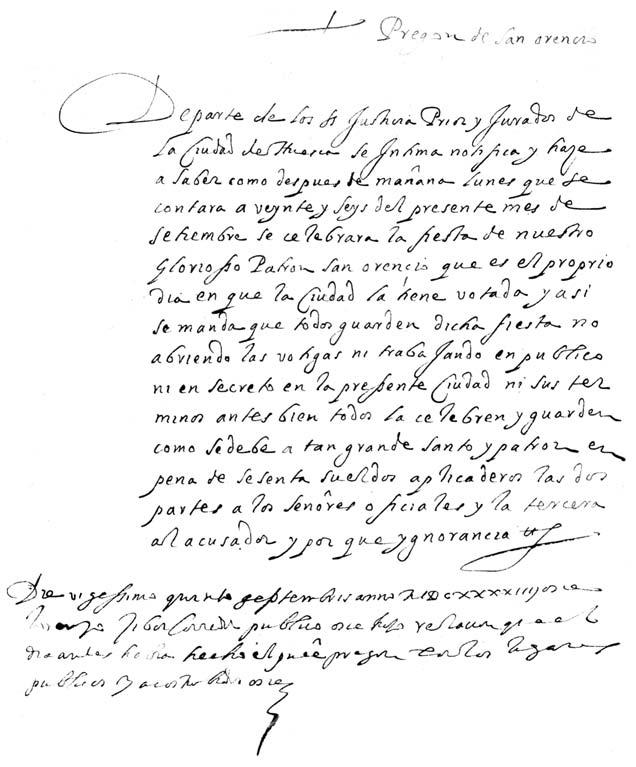 Pregon de San orencio
De parte de los Sʳ Justicia Prior y Jurados de
la Ciudad de Huesca se Intima notifica y haze
a saber como despues de mañana lunes que se
contara a veynte y seys del presente mes de
setiembre se celebrara la fiesta de nuestro
Gloriosso Patron san orencio que es el proprio
dia en que la Ciudad la tiene votada y asi
se manda que todos guarden dicha fiesta no
abriendo las votigas ni trabajando en publico
ni en secreto en la pressente Ciudad ni sus ter
minos antes bien todos la celebren y guarden
como se debe a tan grande santo y patron en
pena de sesenta sueldos aplicaderos las dos
partes a los señores officiales y la tercera
al acusador y por que ygnorancia
Die vigessimo quarto septembris anno MDCXXXXIIII
publico
dia antes hecho el pregon lugares
publicos y